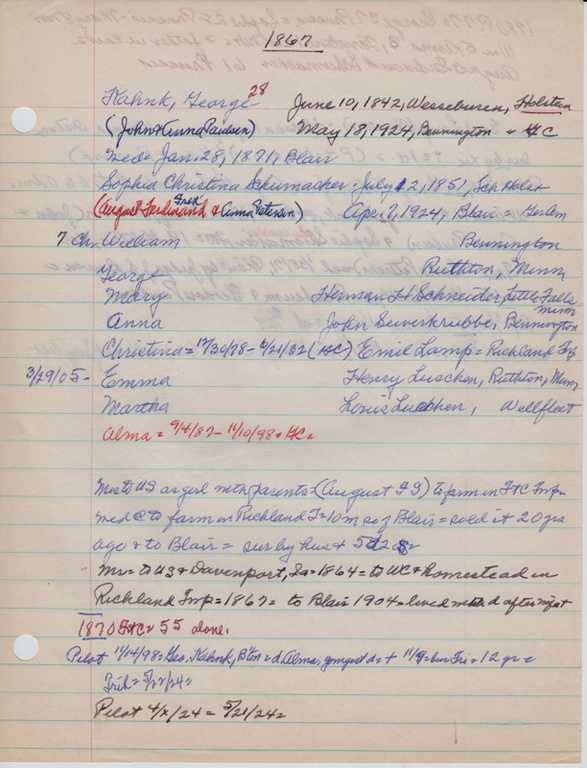 1867
Kahnk, George 28 June 10, 1842, Wesseburen, Holstein
(John & Anna Paulsen) May 18, 1924, Bennington = GC
Med= Jan. 28, 1871, Blair
Sophia Christina Schumacher - July 12, 1851, Sch Holst
(August Ferdinand Fred & Anna Petersen) Apr. 7, 1924, Blair =
7 Ch. William Bennington
George Ruthton, Minn
Mary Herman H Schneider, Little Falls, Minn
Anna John Suverkrubbe, Bennington
Christina = 12/30/78 - 6/21/82 (GC) Emil Lamp = Richland Twp
3/29/05 - Emma Henry Lueschen, Ruthton, Minn
Martha Louis Lueschen, Wellfleet
Alma = 9/4/87 - 11/10/98 = GC =
Mrs to US as girl with parents = (August 99) to farm in Ft C Twp =
Med @ to farm in Richland T = 10 m so of Blair = sold it 20 yrs
ago & to Blair = sur by hus & 5d 2s =
Mr = to US & Davenport, Ia = 1864 = to WC & homestead in
Richland Twp = 1867 = to Blair 1904 = lived with d after
1870 Ft C = 55 alone.
Pilot 11/14/98 = Geo. Kahnk, B'ton = d Alma, youngest d = + 11/9 = bur Fri = 12 yr =
Trib = 5/22/24 =
Pilot 4/x/24 = 5/21/24 =